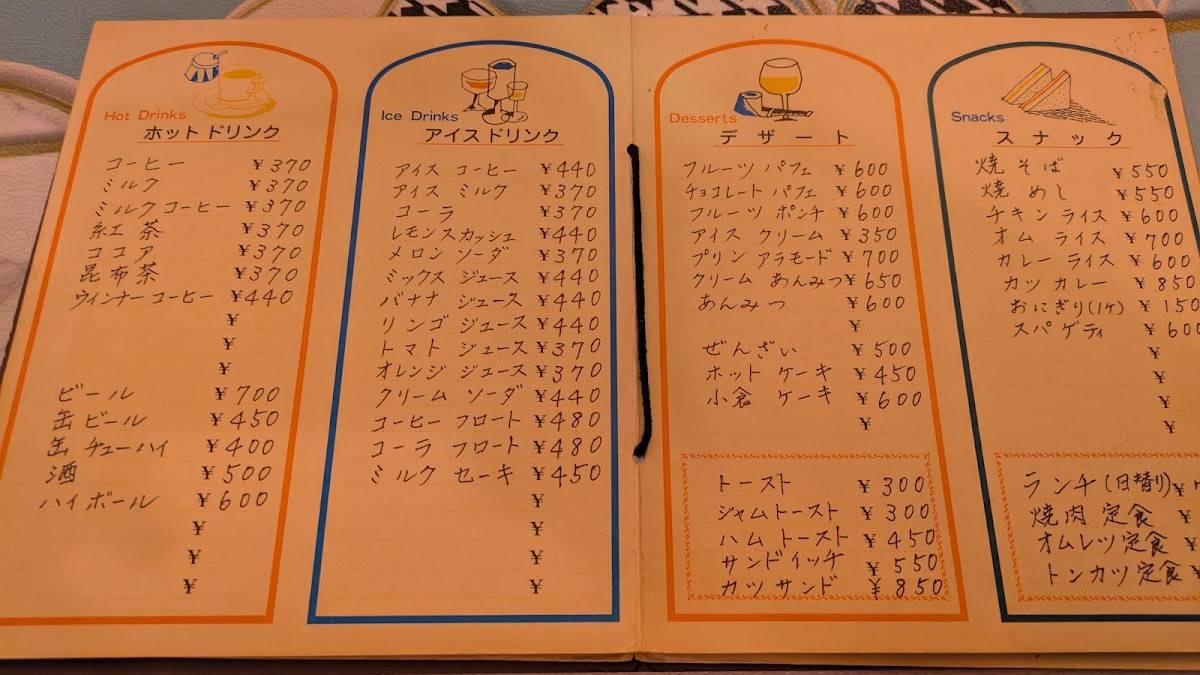 Hot Drinks
ホット ドリンク
コーヒー ¥370
ミルク ¥370
ミルクコーヒー ¥370
紅茶 ¥370
ココア ¥370
昆布茶 ¥370
ウィンナーコーヒー ¥440
¥
¥
¥
ビール ¥700
缶ビール ¥450
缶チューハイ ¥400
酒 ¥500
ハイボール ¥600
¥
¥
¥
Ice Drinks
アイスドリンク
アイス コーヒー ¥440
アイス ミルク ¥370
コーラ ¥370
レモンスカッシュ ¥440
メロン ソーダ ¥370
ミックス ジュース ¥440
バナナ ジュース ¥440
リンゴ ジュース ¥440
トマト ジュース ¥370
オレンジ ジュース ¥370
クリーム ソーダ ¥440
コーヒー フロート ¥480
コーラ フロート ¥480
ミルク セーキ ¥450
¥
¥
¥
¥
Desserts
デザート
フルーツ パフェ ¥600
チョコレート パフェ ¥600
フルーツ ポンチ ¥600
アイス クリーム ¥350
プリン アラモード ¥700
クリーム あんみつ ¥650
あんみつ ¥600
¥
ぜんざい ¥500
ホット ケーキ ¥450
小倉 ケーキ ¥600
¥
トースト ¥300
ジャムトースト ¥300
ハムトースト ¥450
サンドイッチ ¥550
カツサンド ¥850
Snacks
スナック
焼そば ¥550
焼めし ¥550
チキン ライス ¥600
オム ライス ¥700
カレー ライス ¥600
カツ カレー ¥850
おにぎり(1ケ) ¥150
スパゲティ ¥600
¥
¥
¥
¥
ランチ(日替り) ¥
焼肉定食 ¥
オムレツ定食 ¥
トンカツ定食 ¥